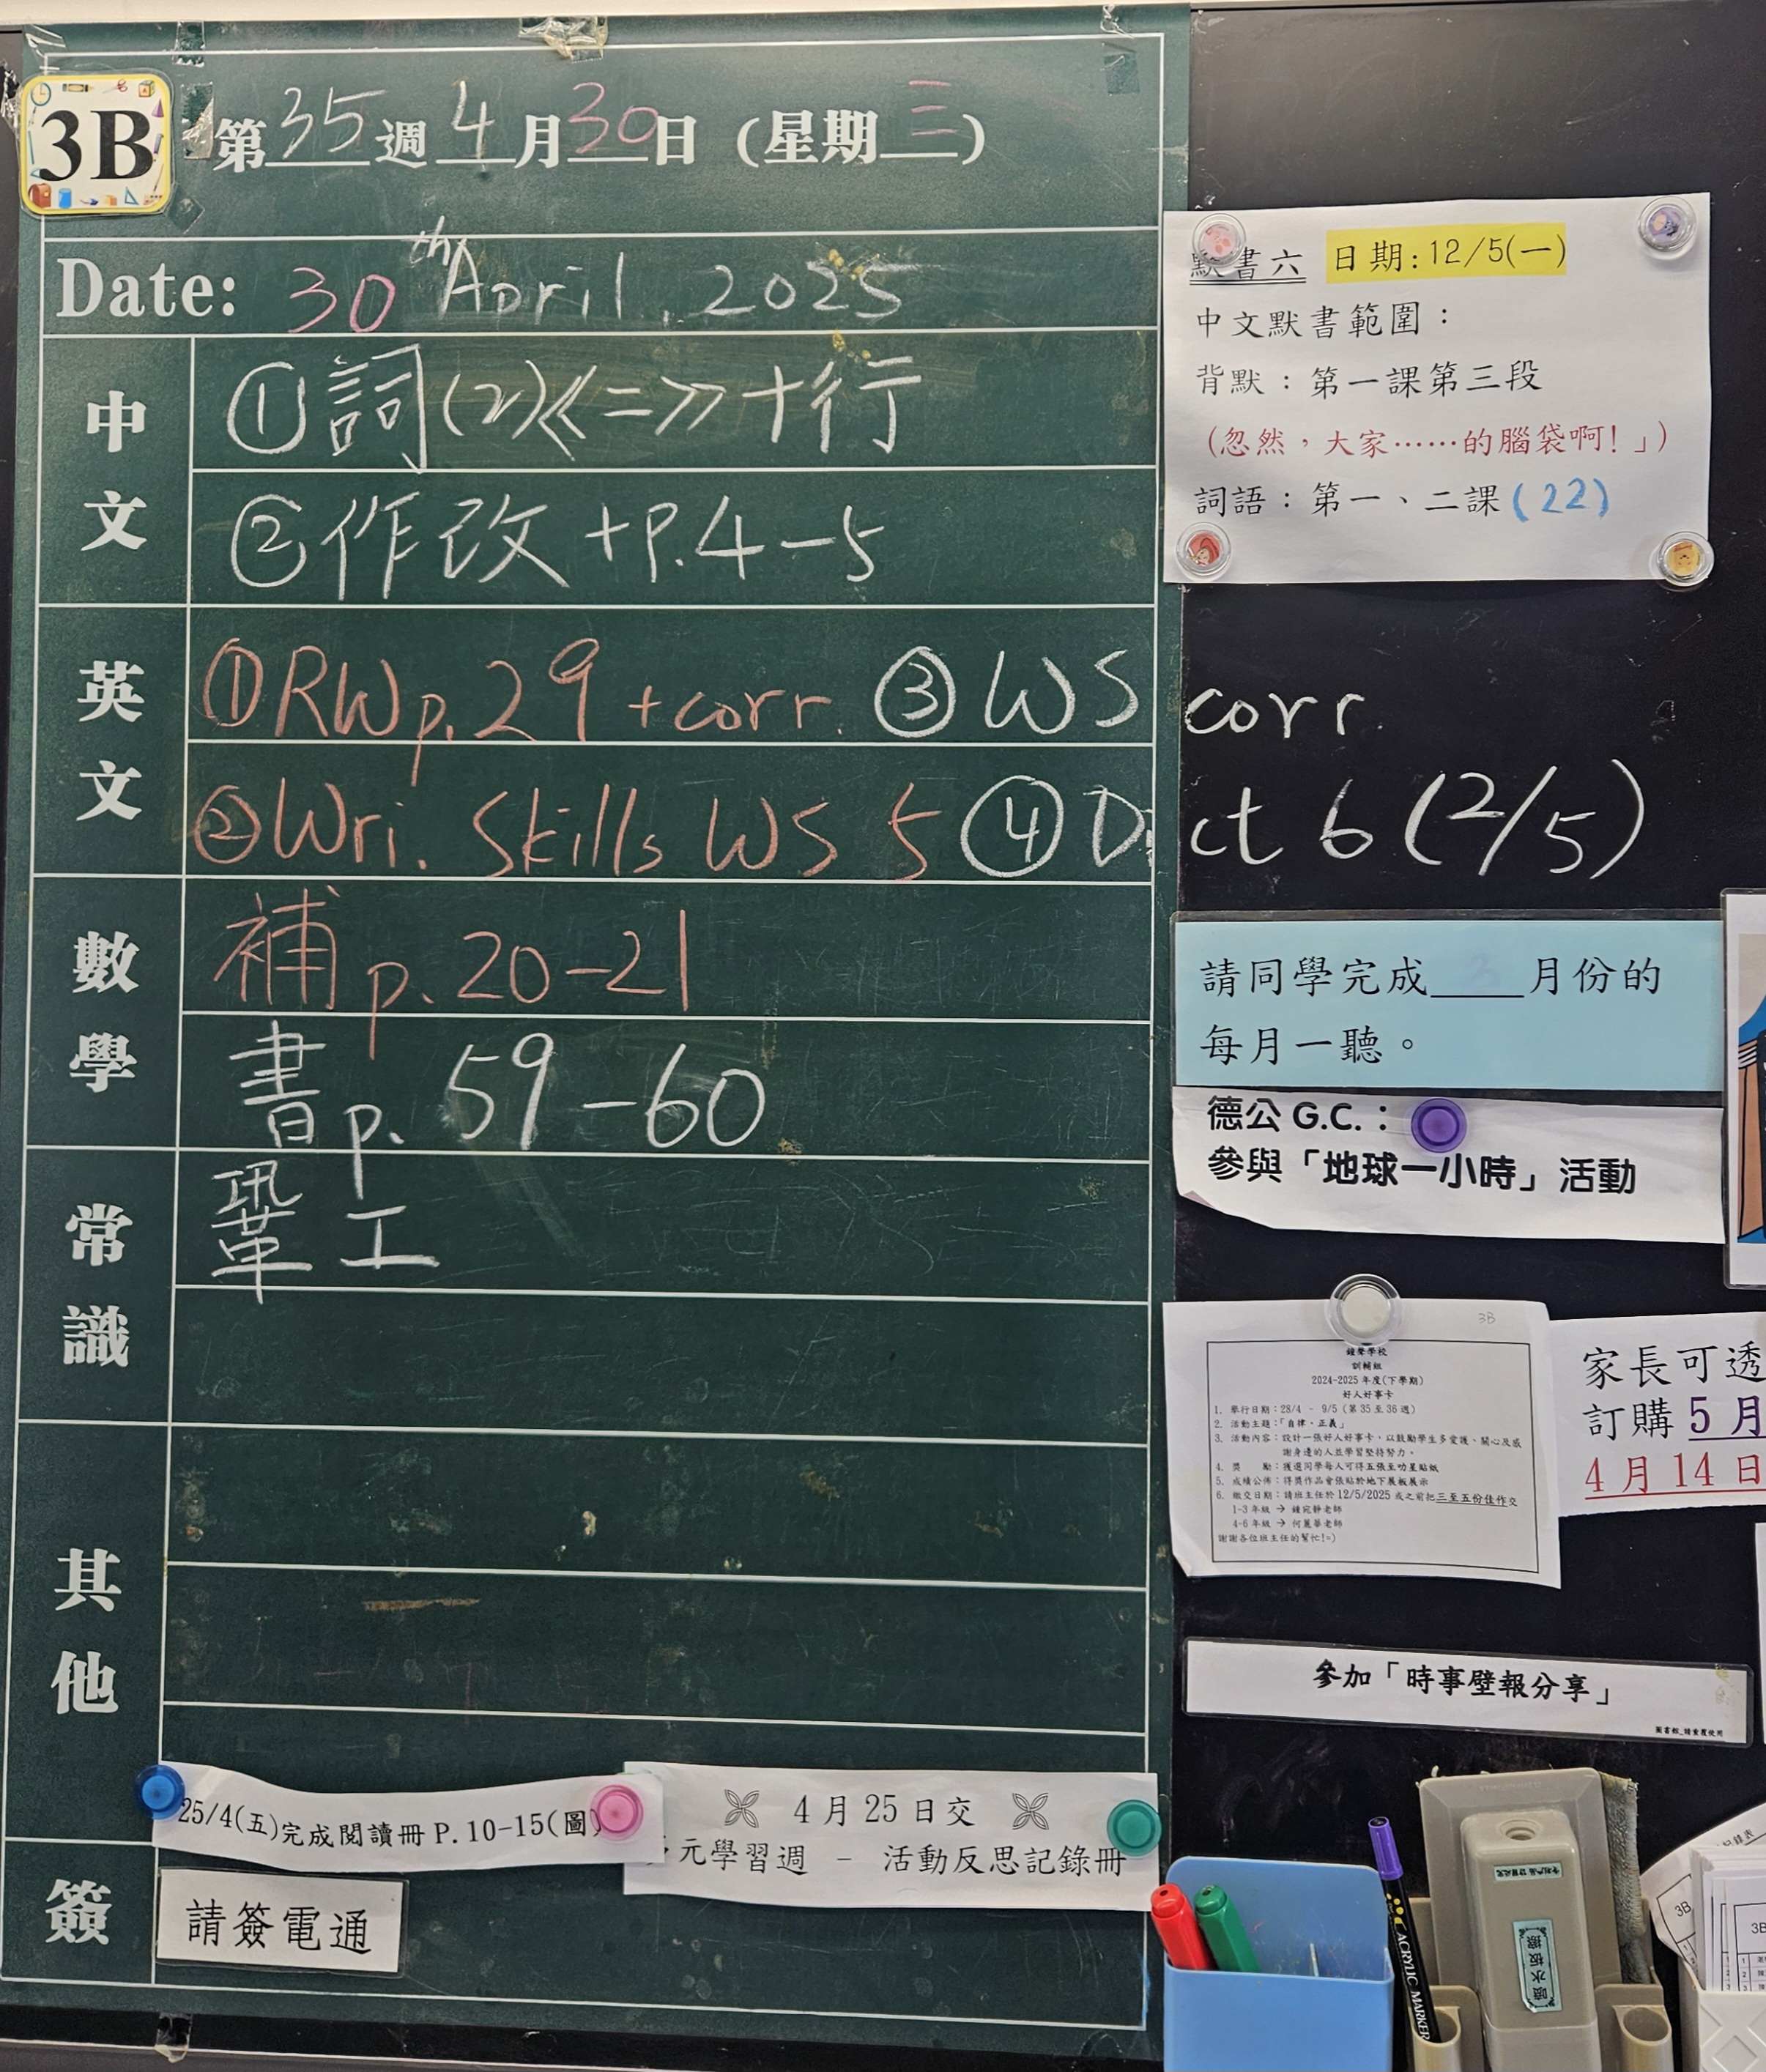 3B
第35週 4月30日 (星期三)
Date: 30th April, 2025
中文
①詞(2)《二》+行
②作改+P.4-5
英文
①RWp.29+corr. ③WS corr.
②Wri. Skills WS 5 ④Dict 6 (2/5)
數學
補 p. 20-21
書 p. 59-60
常識
鞏工
其他
25/4(五)完成閱讀冊 P.10-15(圖)
4月25日交
元學習週 - 活動反思記錄冊
簽
請簽電通
默書六 日期:12/5(一)
中文默書範圍:
背默:第一課第三段
(忽然,大家……的腦袋啊!」)
詞語:第一、二課(22)
請同學完成 3 月份的
每月一聽。
德公 G.C.:
參與「地球一小時」活動
3B
鐘聲學校
訓輔組
2024-2025 年度(下學期)
好人好事卡
1. 舉行日期:28/4 - 9/5 (第 35 至 36 週)
2. 活動主題:「自律、正義」
3. 活動內容:設計一張好人好事卡,以鼓勵學生多愛護、關心及感
謝身邊的人並學習堅持努力。
4. 獎 勵:獲選同學每人可得五張至叻星貼紙
5. 成績公佈:得獎作品會張貼於地下展板展示
6. 繳交日期:請班主任於 12/5/2025 或之前把三至五份佳作交
1-3 年級 → 鍾宛靜老師
4-6 年級 → 何麗華老師
謝謝各位班主任的幫忙!=)
家長可透
訂購 5 月
4 月 14 日
參加「時事壁報分享」
圖書館_請重覆使用
ACRYLIC MARKER
3B
3B